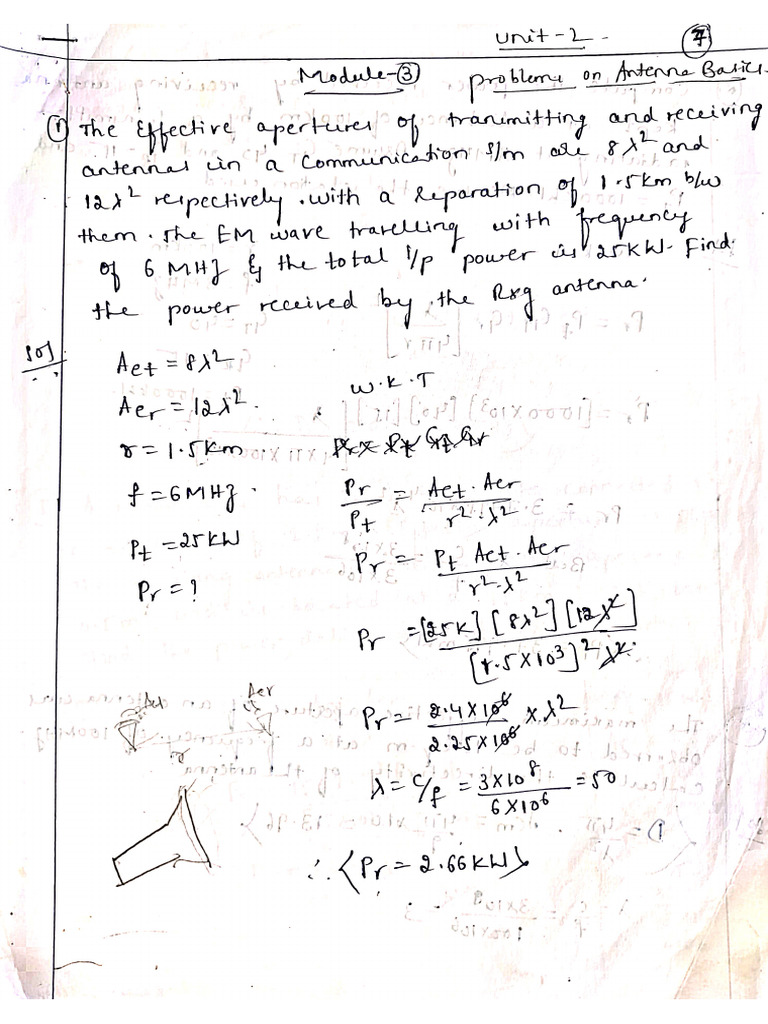 Unit-2. 7
Module-3 problems on Antenna Basics.
① The Effective apertures of tranmitting and receiving
antennas in a communication s/m are 8λ² and
12λ² respectively. with a separation of 1.5km b/w
them. The EM wave travelling with frequency
of 6 MHz & the total i/p power is 25KW. Find
the power received by the Rxg antenna.
Sol
Aet = 8λ²
W.K.T
Aer = 12λ².
r = 1.5km
Pr = Pt Gt Gr
f = 6MHz.
Pr/Pt = Aet . Aer / r² . λ²
Pt = 25KW
Pr = Pt Aet . Aer / r² . λ²
Pr = ?
Pr = [25K] [8λ²] [12λ²] / [1.5×10³]² λ²
Aet Aer
r
Pr = 2.4×10⁶ / 2.25×10⁶ × λ²
λ = c/f = 3×10⁸ / 6×10⁶ = 50
∴ ⟨Pr = 2.66KW⟩